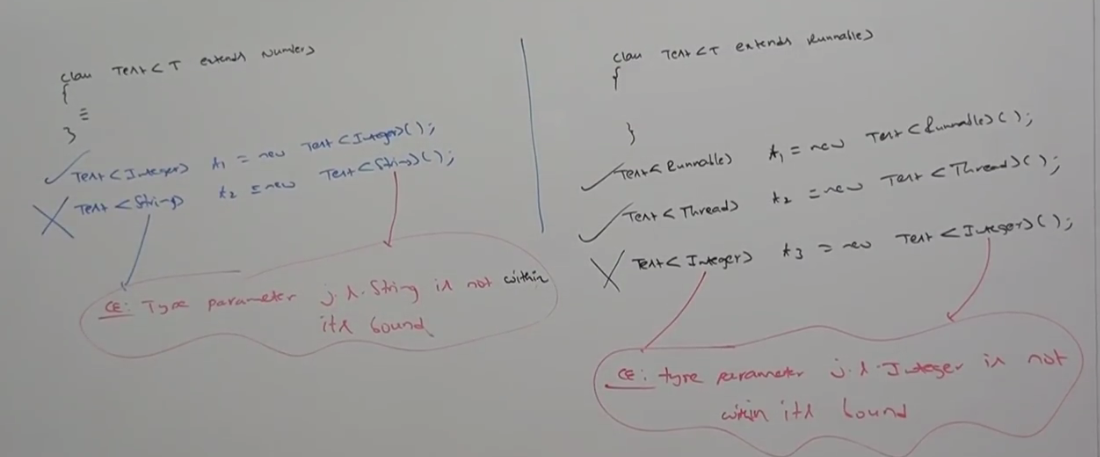 class Test<T extends Number>
{
≡
}
✓ Test<Integer> t1 = new Test<Integer>();
X Test<String> t2 = new Test<String>();
CE: Type parameter j.l.String is not within
its bound
class Test<T extends Runnable>
{
}
✓ Test<Runnable> t1 = new Test<Runnable>();
✓ Test<Thread> t2 = new Test<Thread>();
X Test<Integer> t3 = new Test<Integer>();
CE: type parameter j.l.Integer is not
within its bound